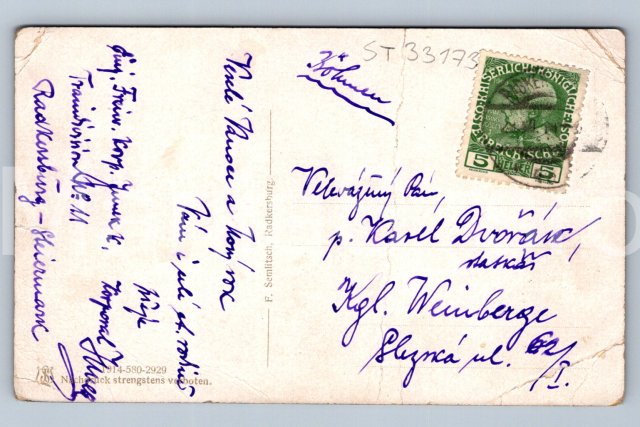 Veselé Vánoce a Nový rok
Vám i celé ct. rodině
přeje
Korporal
Einj. Freiw. Korp.
Traindivision No 11
Radkersburg - Steiermark
1914-580-2929
Nachdruck strengstens verboten.
F. Semlitsch, Radkersburg.
ST 33173
Böhmen
KAISERLICHE KÖNIGLICHE ÖSTERREICHISCHE POST
5 HELLER 5
Velevážený Pán,
p. Karel Dvořák,
Kgl. Weinberge
Slezská ul. 62/
I.